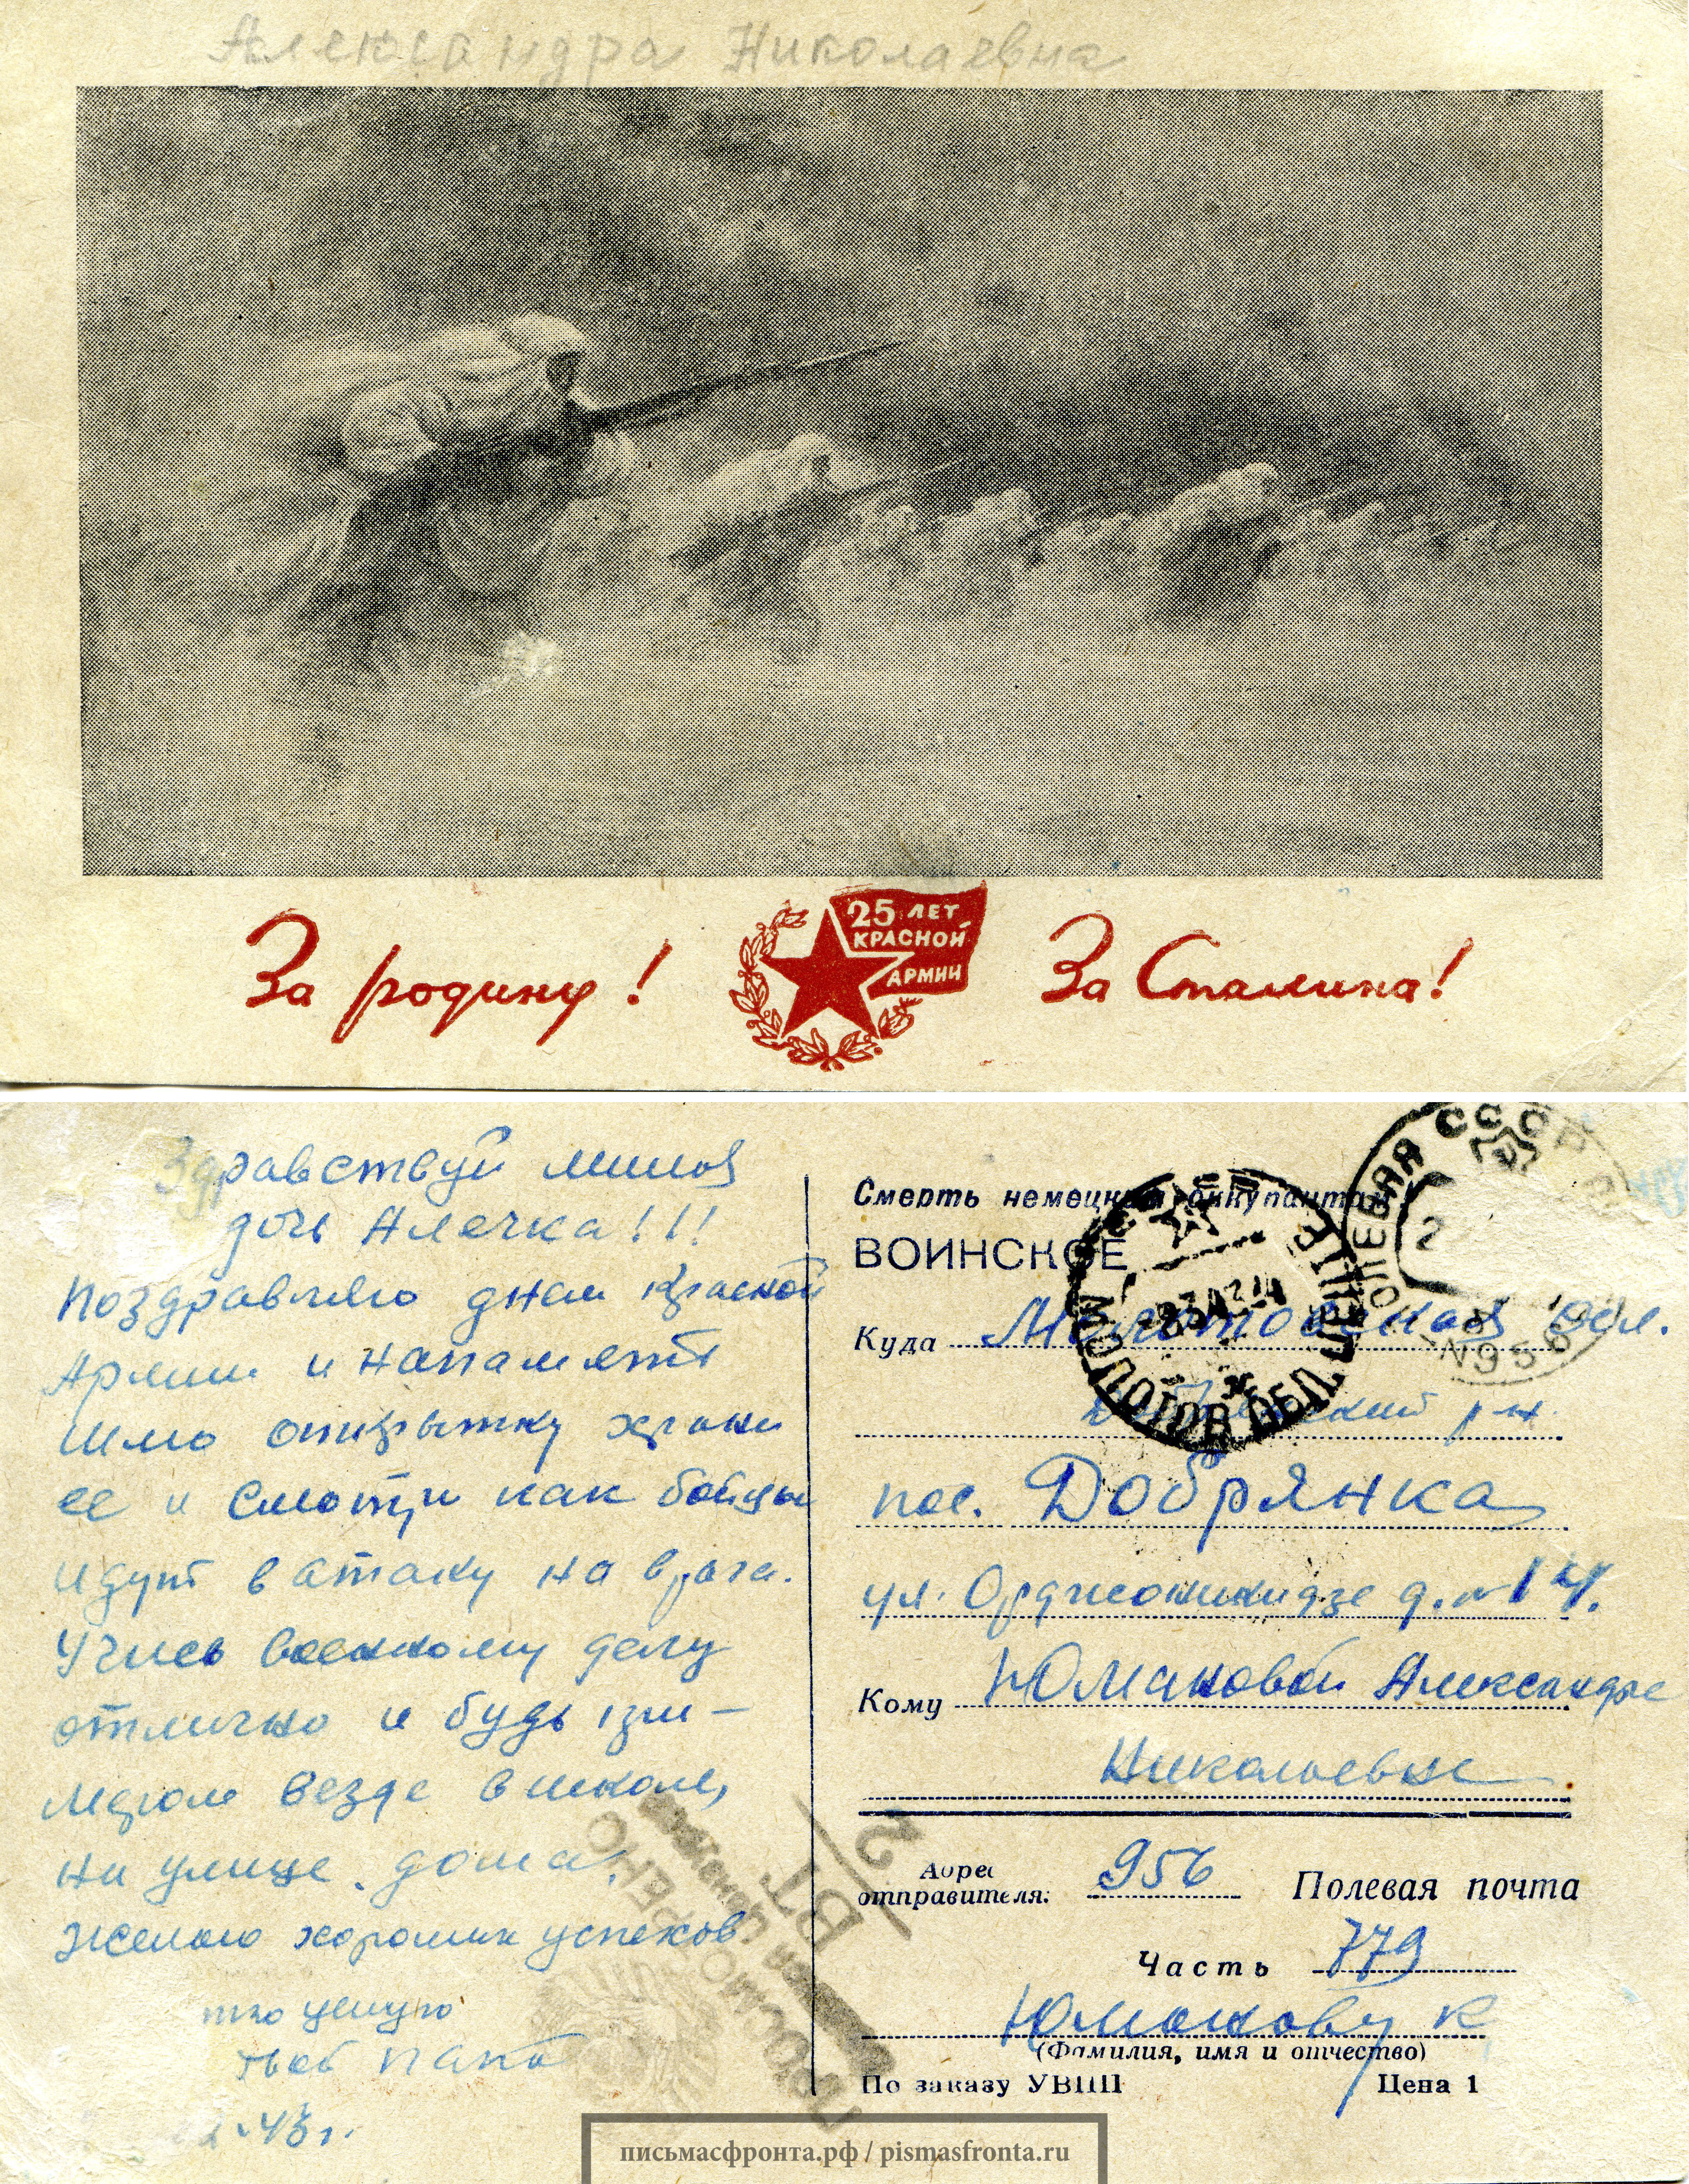 Александра Николаевна
За родину!
25 ЛЕТ
КРАСНОЙ
АРМИИ
За Сталина!
Здравствуй милая
дочь Алечка!!!
Поздравляю днем Красной
Армии и на память
шлю открытку храни
ее и смотри как бойцы
идут в атаку на врага.
Учись военному делу
отлично и будь при-
мером везде в школе,
на улице, дома.
Желаю хороших успехов
целую
твой папа
43 г.
Смерть немецким оккупантам
ВОИНСКОЕ
Куда Молотовская обл.
р-н.
пос. Добрянка
ул. Орджоникидзе д. № 14.
Кому Юмановой Александре
Николаевне
Адрес
отправителя: 956 Полевая почта
Часть 779
Юманову Н
(Фамилия, имя и отчество)
По заказу УВПП Цена 1
ПОЛЕВАЯ СССР
№ 956
МОЛОТОВ ОБЛ.
ПРОСМОТРЕНО
письмасфронта.рф / pismasfronta.ru